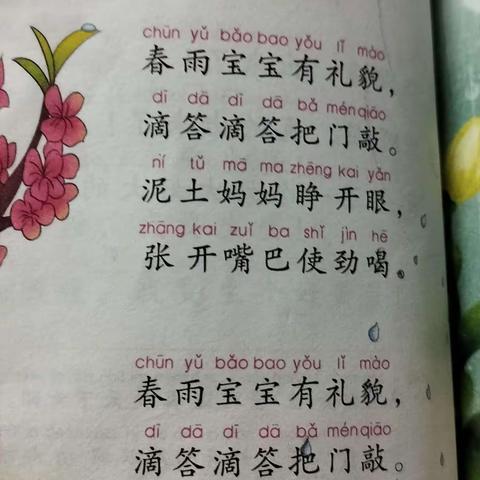 chūn yǔ bǎo bao yǒu lǐ mào
春雨宝宝有礼貌，
dī dā dī dā bǎ mén qiāo
滴答滴答把门敲。
ní tǔ mā ma zhēng kai yǎn
泥土妈妈睁开眼，
zhāng kai zuǐ ba shǐ jìn hē
张开嘴巴使劲喝。
chūn yǔ bǎo bao yǒu lǐ mào
春雨宝宝有礼貌，
dī dā dī dā bǎ mén qiāo
滴答滴答把门敲。